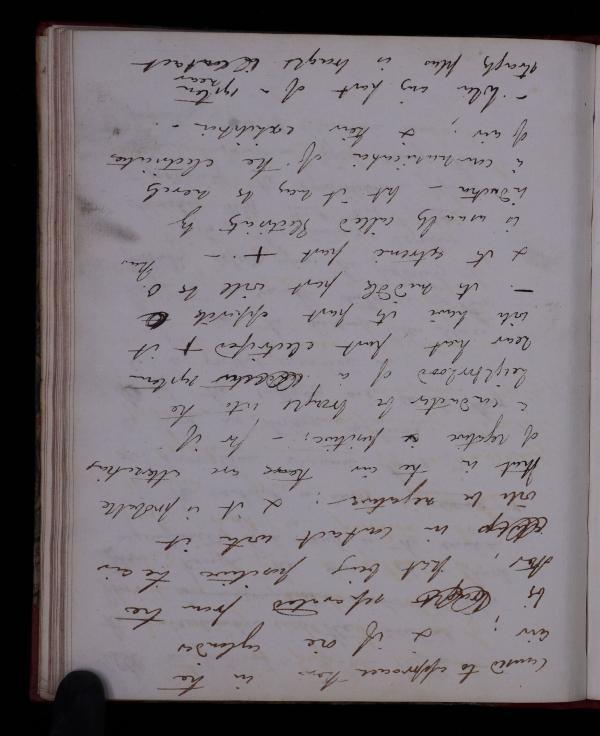 caused to approach them in the
air; & if one cylinder
be separated from the
, that being positive the air
in contact with it
will be negative: & it is probable
that in the air there are
of negative & positive; - for if
a conductor be brought into the
neighborhood of a system
near that part electrified + it
will have its part opposite
- its middle part will be 0.
& its extreme part + - this
is usually called Electricity by
induction - but it may be merely
a communication of the electricities
of air, & their exhibition -
- When any part of a system near
strongly plus is brought contact